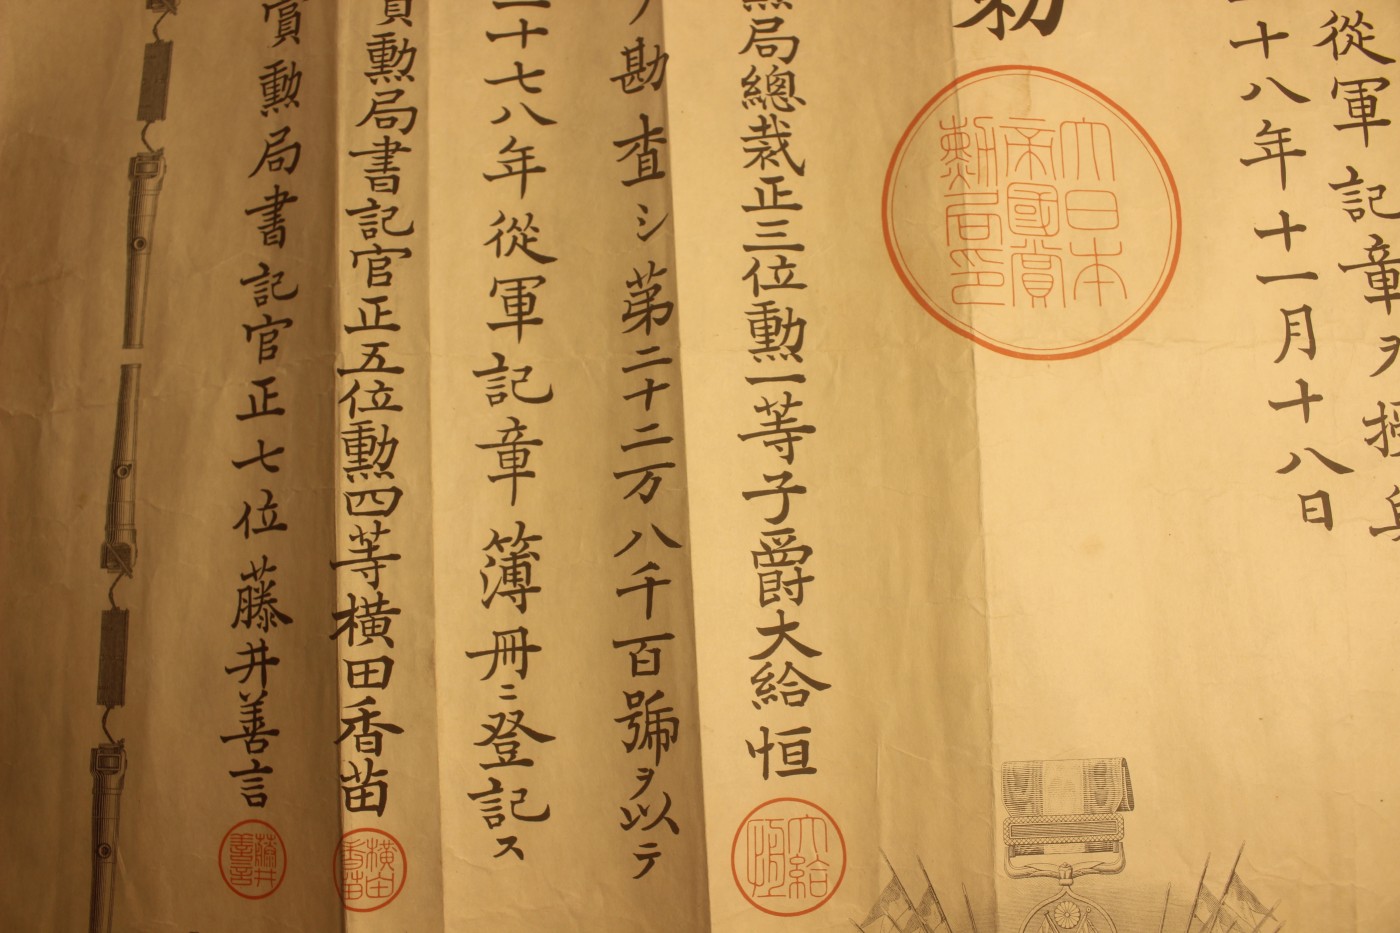 從軍記章ヲ授與
十八年十一月十八日
大日本
帝國賞
勲局印
局總裁正三位勲一等子爵大給恒
大給
恒
勘査シ第二十二万八千百號ヲ以テ
二十七八年從軍記章簿冊ニ登記ス
賞勲局書記官正五位勲四等横田香苗
横田
香苗
賞勲局書記官正七位藤井善言
藤井
善言